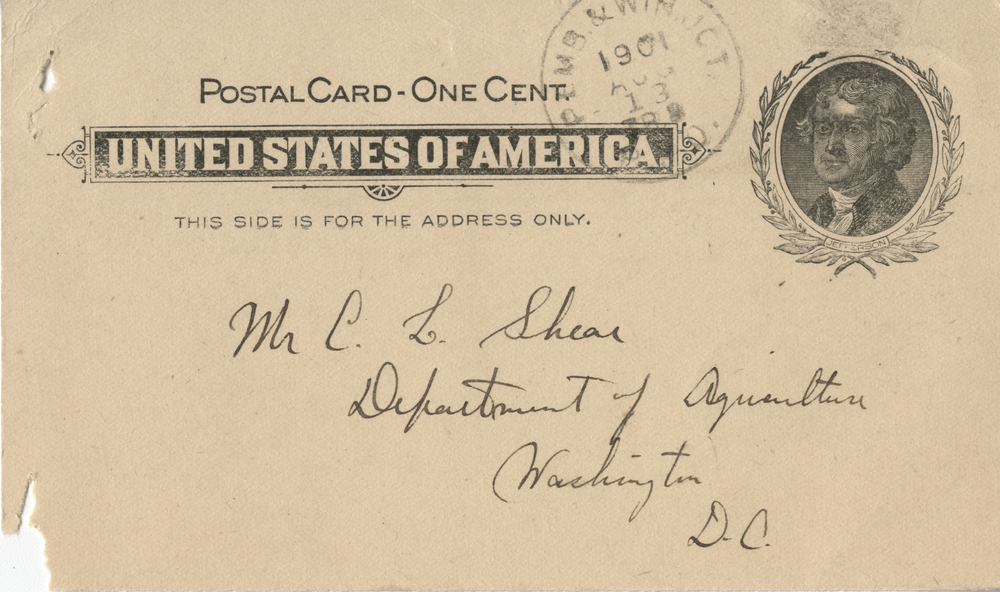 PEMB. & WIN. JCT.
1901
AUG
13
POSTAL CARD - ONE CENT.
UNITED STATES OF AMERICA.
THIS SIDE IS FOR THE ADDRESS ONLY.
JEFFERSON
Mr C. L. Shear
Department of Agriculture
Washington
D.C.